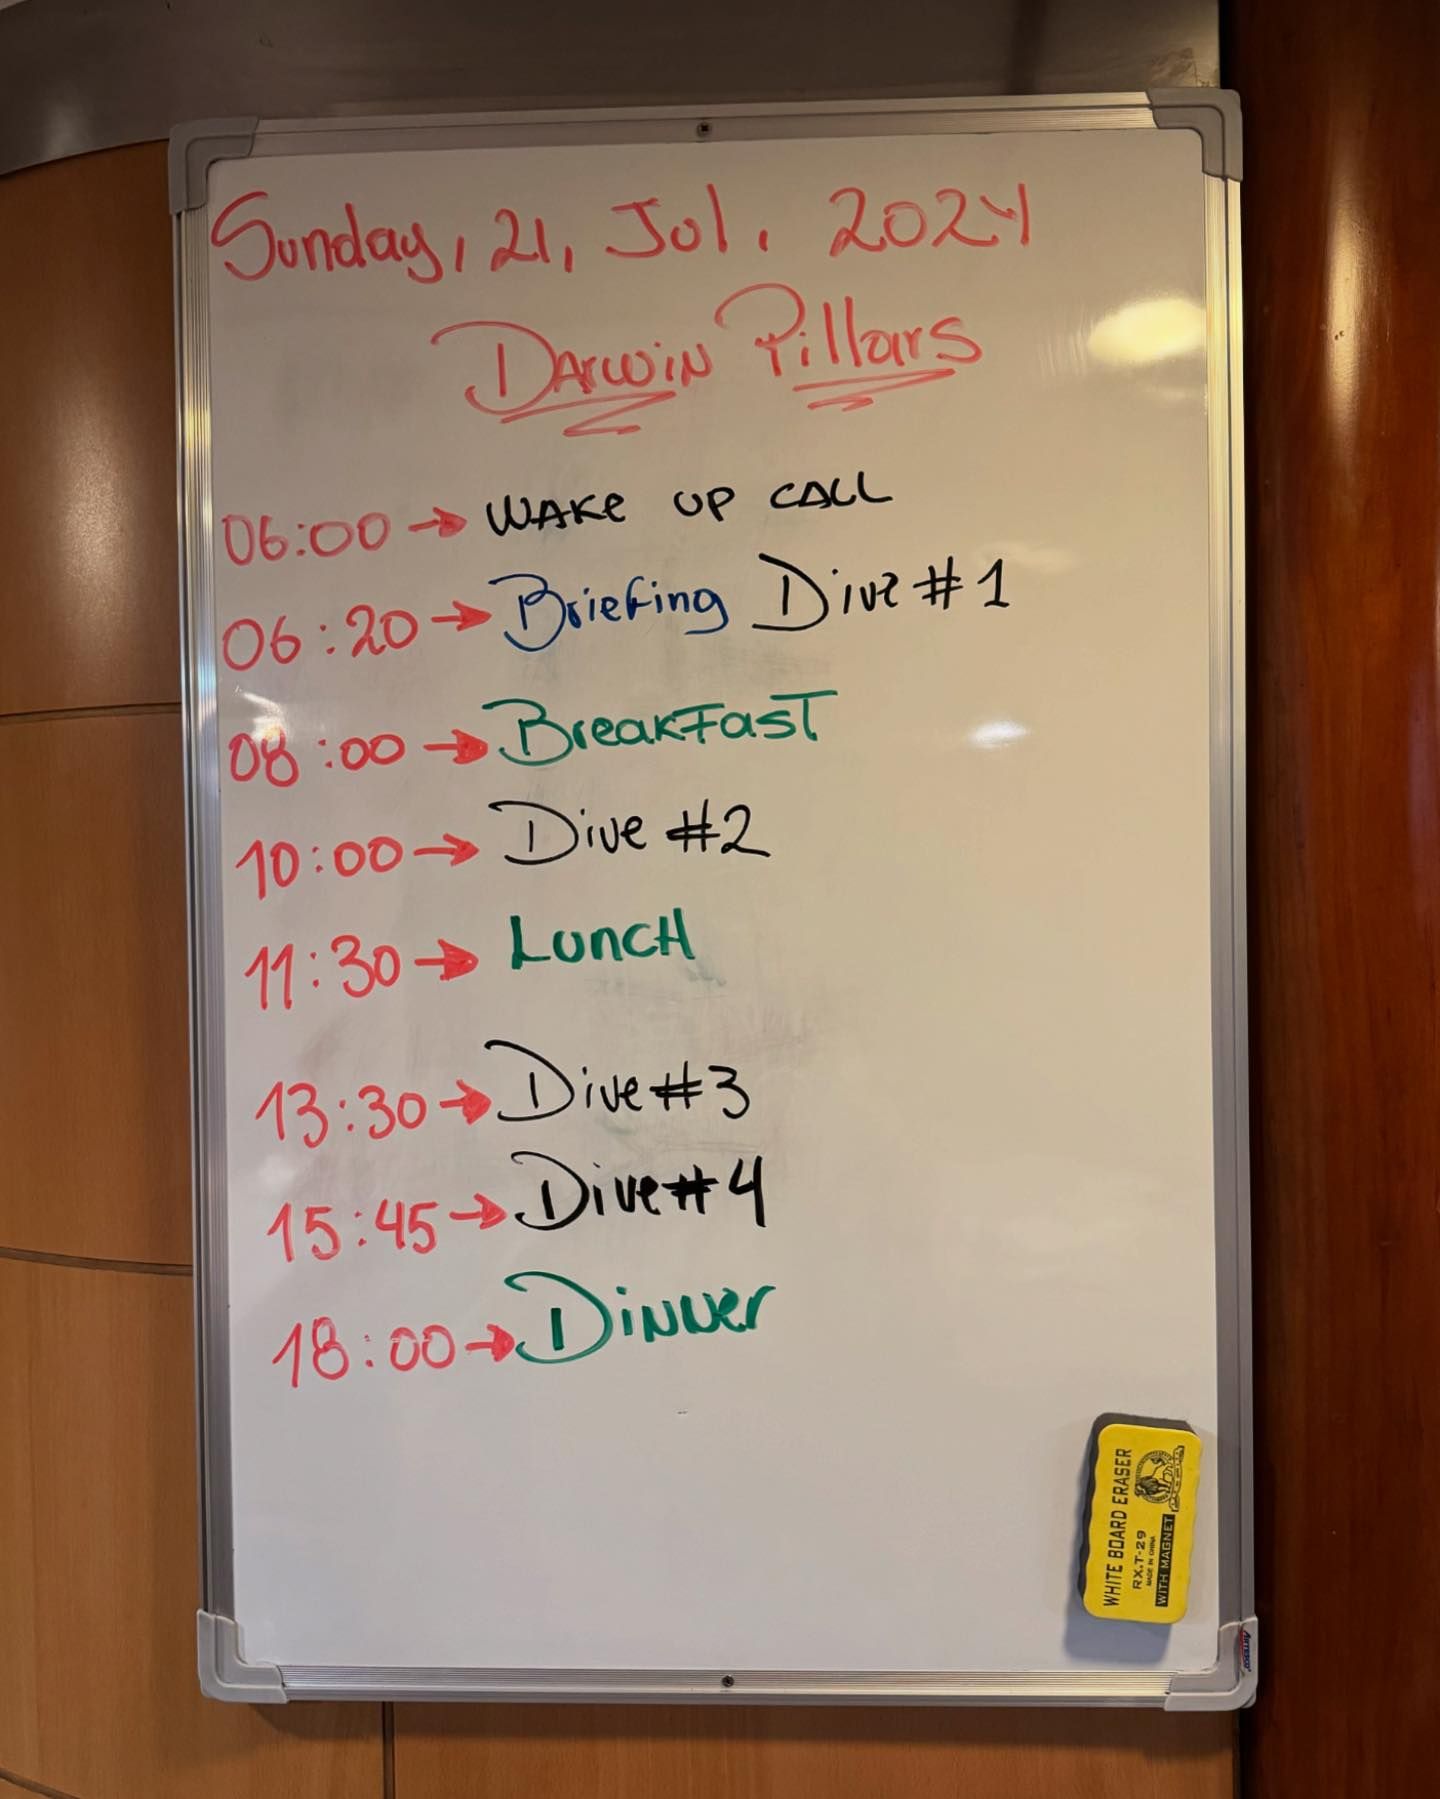 Sunday, 21, Jul. 2024
Darwin Pillars
06:00 → WAKE UP CALL
06:20 → Briefing Dive #1
08:00 → BreakFast
10:00 → Dive #2
11:30 → LuncH
13:30 → Dive #3
15:45 → Dive #4
18:00 → Dinner
WHITE BOARD ERASER
RX.T-29
MADE IN CHINA
WITH MAGNET